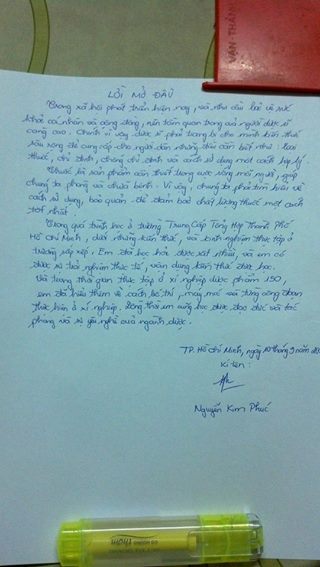 VĂN THÁNH
LỜI MỞ ĐẦU
Trong xã hội phát triển hiện nay, và nhu cầu về sức
khỏe cá nhân và cộng đồng, nên tầm quan trọng của người dược sĩ
càng cao. Chính vì vậy dược sĩ phải trang bị cho mình kiến thức
sâu rộng để cung cấp cho người dân những điều cần biết như: loại
thuốc, chỉ định, chống chỉ định và cách sử dụng một cách hợp lý.
Thuốc là sản phẩm cần thiết trong cuộc sống mỗi người, giúp
chúng ta phòng và chữa bệnh. Vì vậy, chúng ta phải tìm hiểu về
cách sử dụng, bảo quản để đảm bảo chất lượng thuốc một cách
tốt nhất
Trong quá trình học ở trường Trung Cấp Tổng Hợp Thành Phố
Hồ Chí Minh, dưới những kiến thức, và kinh nghiệm thực tập ở
trường sắp xếp. Em đã học hỏi được rất nhiều, và em có
được sự trải nghiệm thực tế, vận dụng kiến thức được học.
Và trong thời gian thực tập ở xí nghiệp dược phẩm 150,
em đã hiểu thêm về cách bố trí, máy móc và từng công đoạn
thực hiện ở xí nghiệp. Đồng thời em cũng học được đạo đức và tác
phong và sự yêu nghề của ngành dược.
TP. Hồ Chí Minh, ngày 10 tháng 9 năm
Kí tên:
Nguyễn Kim Phúc